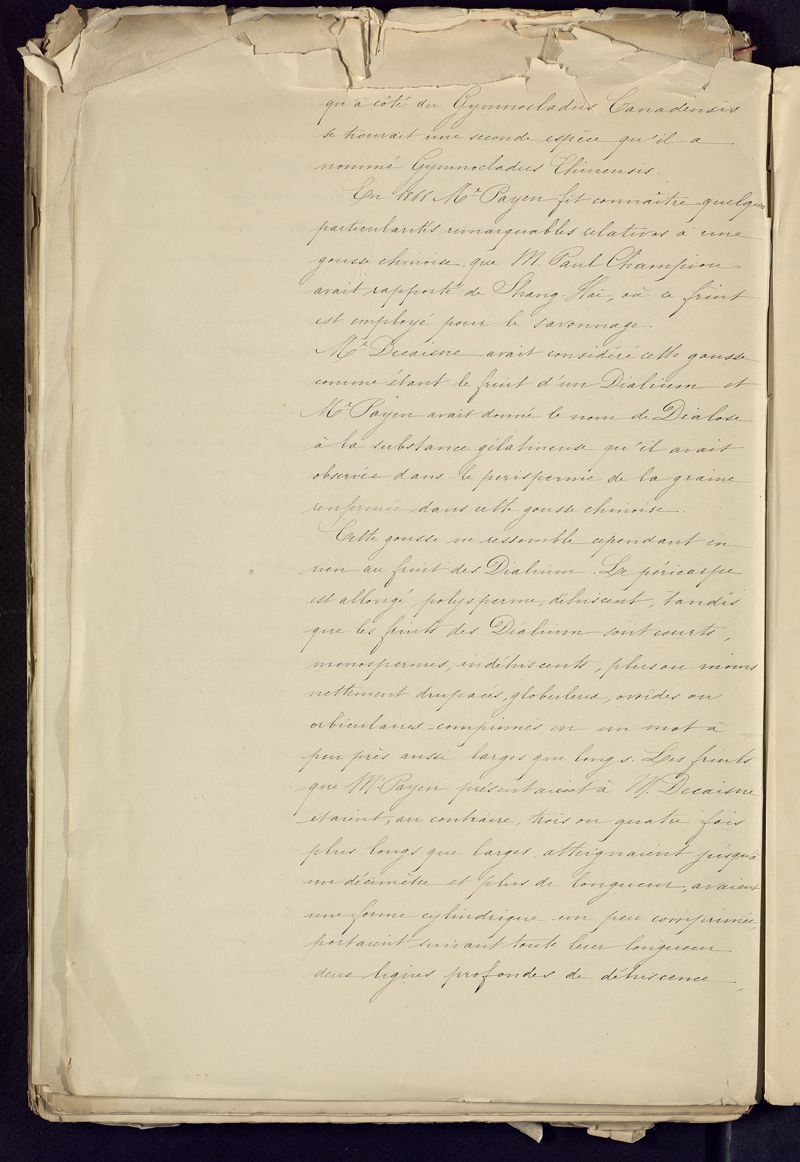 qu'à côté du Gymnocladus Canadensis
se trouvait une seconde espèce qu'il a
nommé Gymnocladus Chinensis.
En 1866 Mr Payen fit connaître quelques
particularités remarquables relatives à une
gousse chinoise, que M. Paul Champion
avait rapporté de Shang-Haï, où ce fruit
est employé pour le savonnage.
Mr Decaisne avait considéré cette gousse
comme étant le fruit d'un Dialium et
Mr Payen avait donné le nom de Dialose
à la substance gélatineuse qu'il avait
observée dans le périsperme de la graine
renfermée dans cette gousse chinoise.
Cette gousse ne ressemble cependant en
rien au fruit des Dialium. Le péricarpe
est allongé, polysperme, déhiscent, tandis
que les fruits des Dialium sont courts,
monospermes, indéhiscents, plus ou moins
nettement drupacés, globuleux, ovoïdes ou
orbiculaires-comprimés, en un mot à
peu près aussi larges que longs. Les fruits
que Mr Payen présentaient à M. Decaisne
étaient, au contraire, trois ou quatre fois
plus longs que larges, atteignaient jusqu'à
un décimètre et plus de longueur, avaient
une forme cylindrique un peu comprimée,
portaient suivant toute leur longueur
deux lignes profondes de déhiscence,